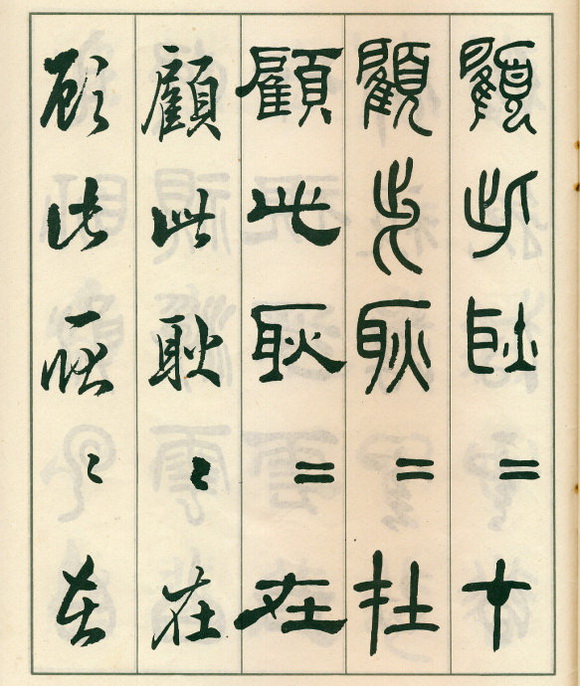 顧此耿＝在
顧此耿＝在
顧此耿＝在
顧此耿〻在
顧此耿〻在